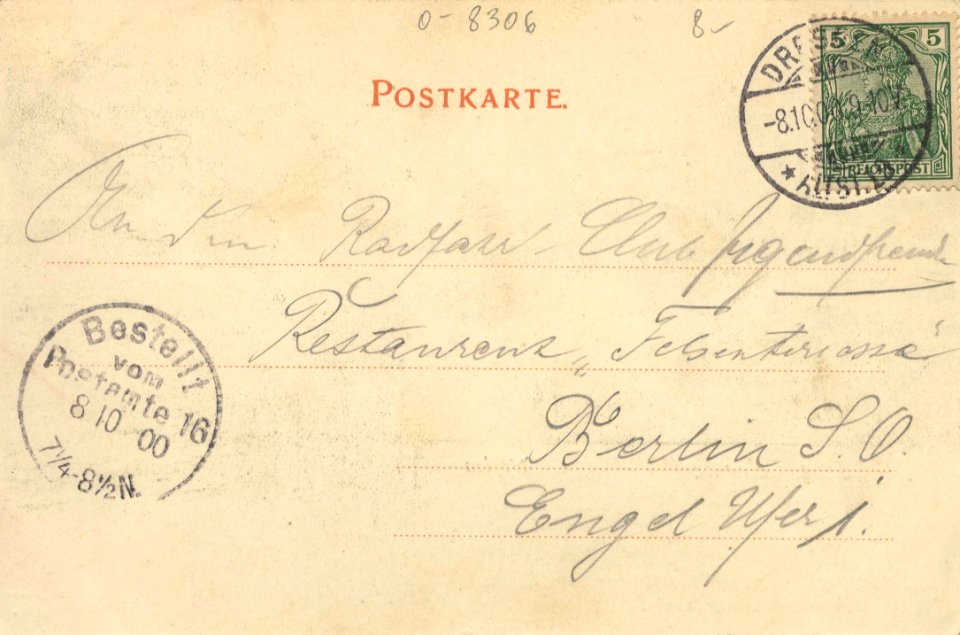 0-8306 8-
POSTKARTE.
5 5
REICHSPOST
DRESDEN
-8.10.00.9-10V.
* ALTST.
An den Radfahr-Club Jugendfreunde
Restaurant „Felsenterrasse"
Berlin S.O.
Engel Ufer 1.
Bestellt
vom
Postamte 16
8 10 00
7¼-8½N.